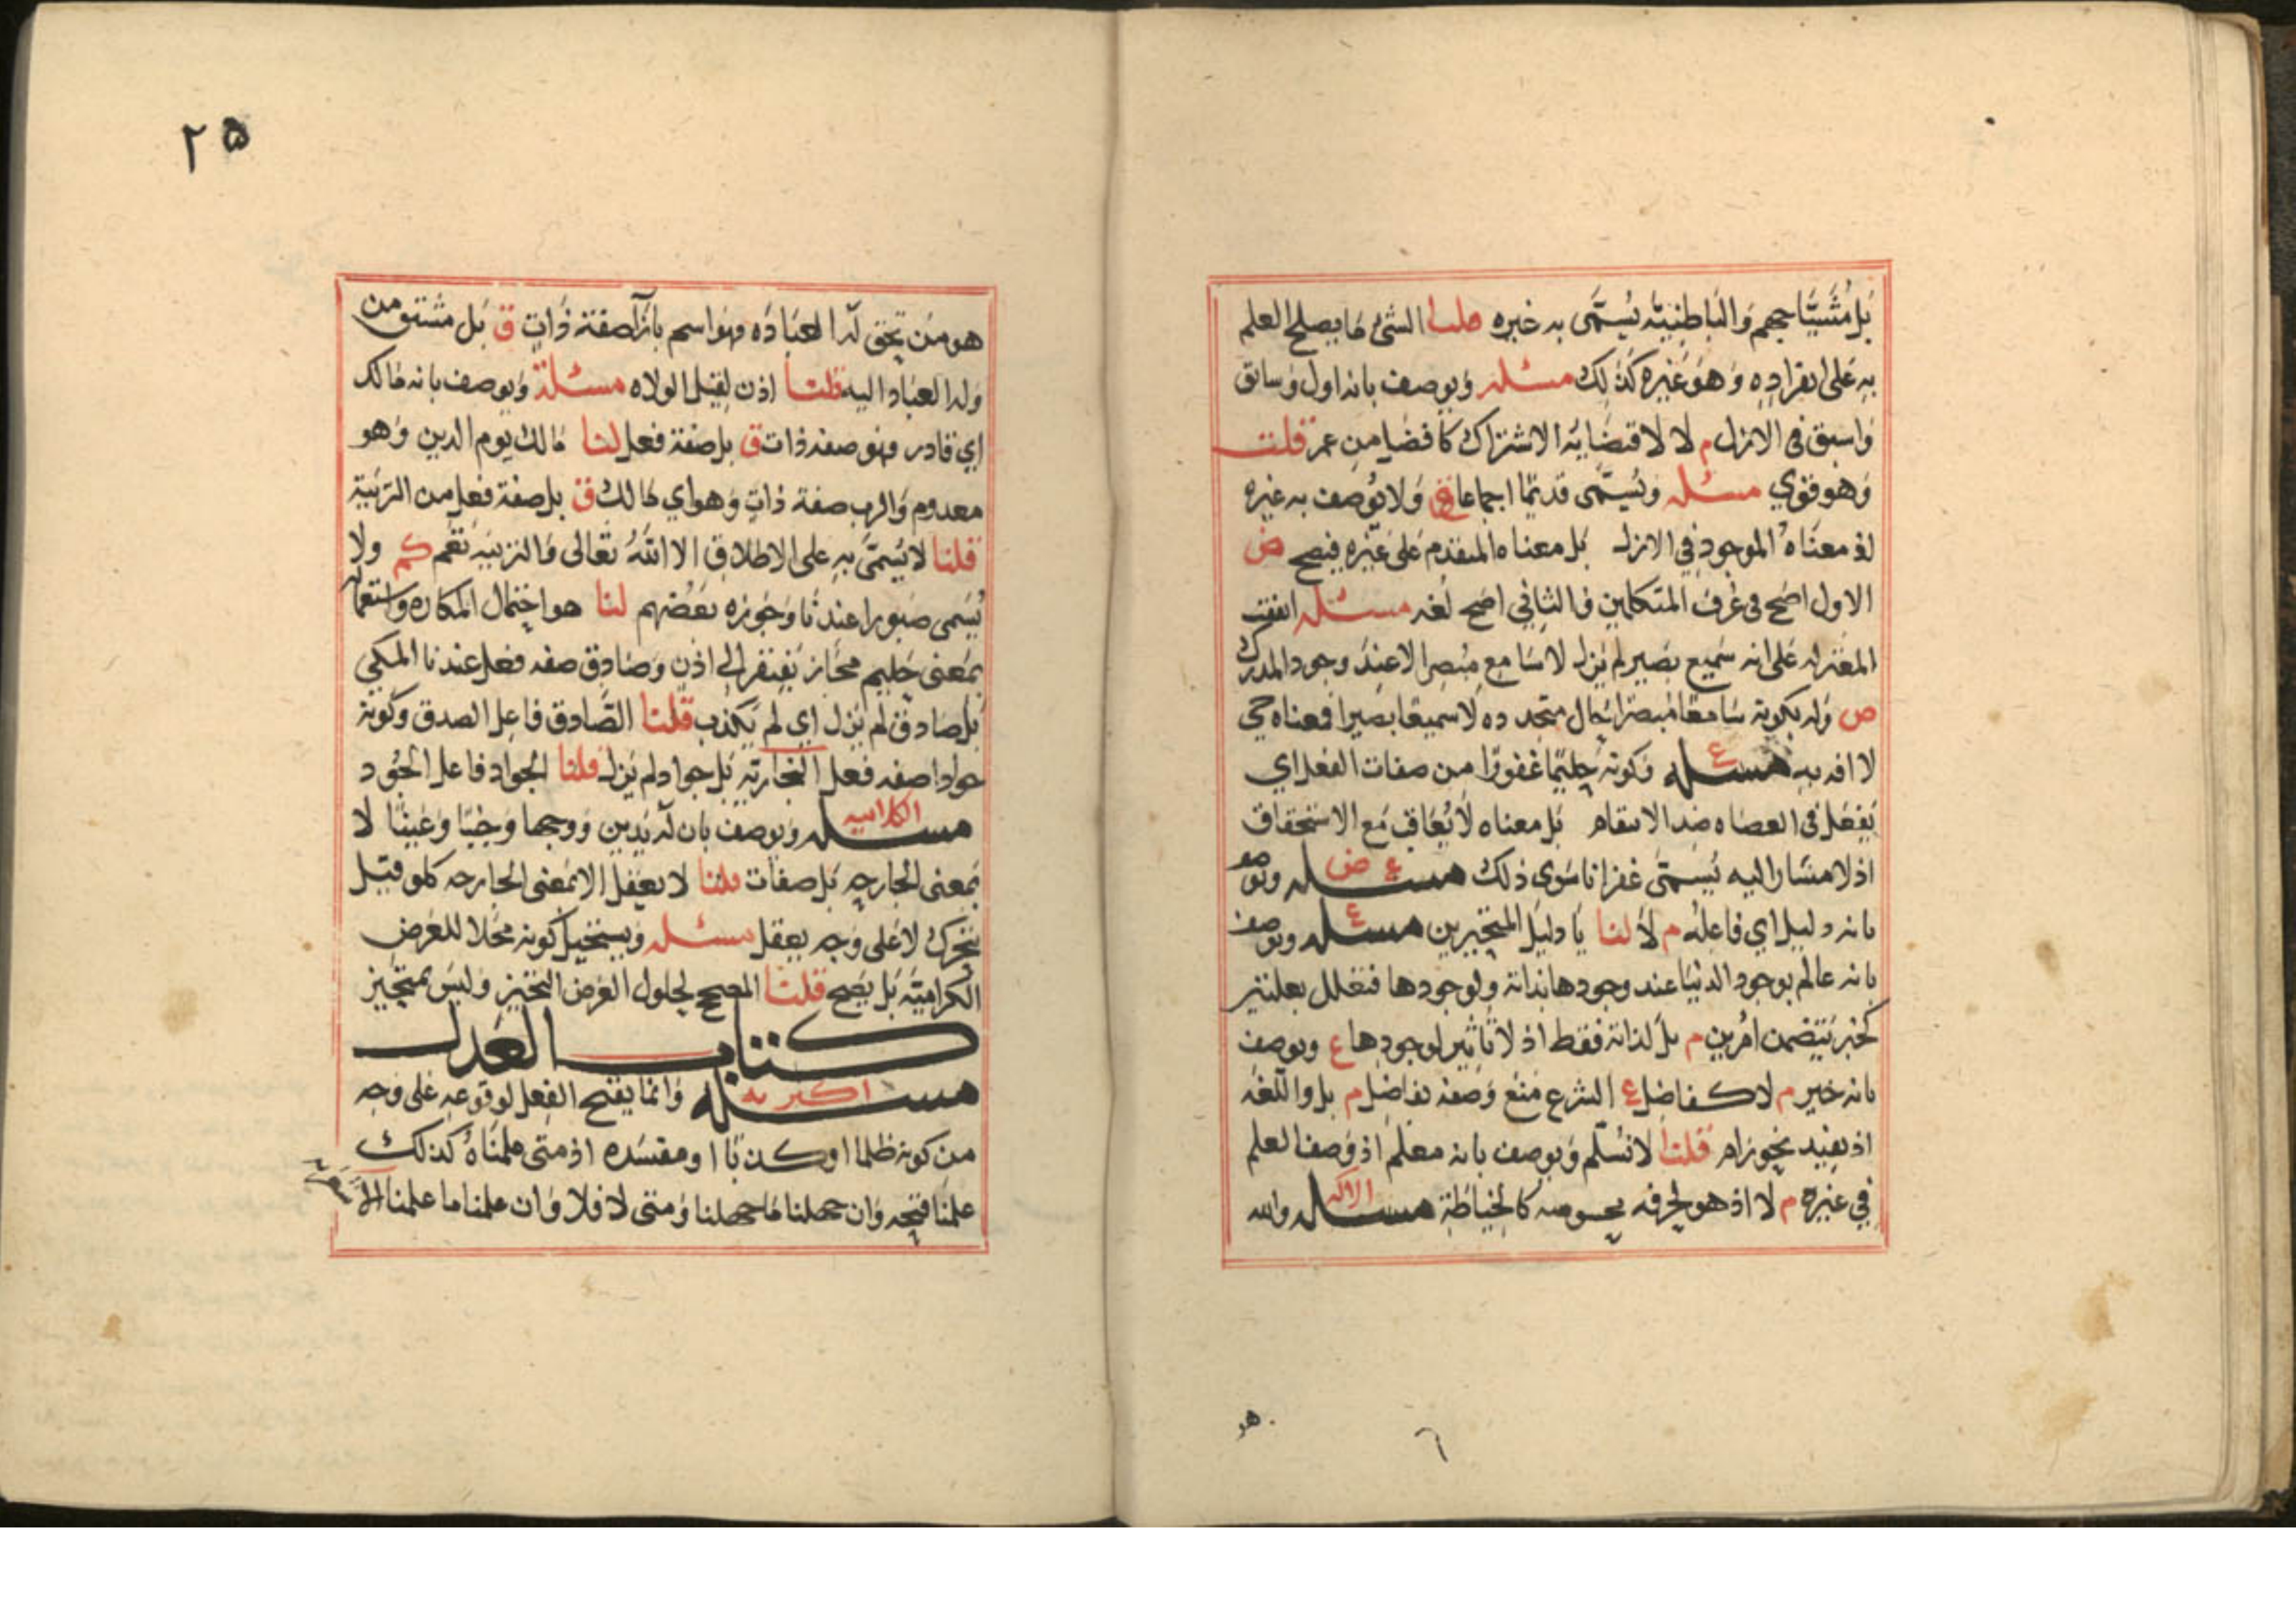 بل مُشَيِّا جهم وَالبَاطِنِيّه يُسمَّى به غيره قلنا الشئ مَا يصلح العلم
بِهِ عَلى انفرادِهِ وَهُوَ غَيره كذلك مسئله وَيوصف بانه اول وَسابق
وَاسبق فى الازل م لا لاقتضَايه الاشتراك كافضل من عمر قلت
وَهو قوي مسئله وَيُسمَّى قديمًا اجماعا وَلا يُوصف به غيره
اذ معنَاهُ الموجود في الازل بَل معناه المتقدم عَلى غيره فيصح ض
الاول اصَح في عُرف المتكلمين والثاني اصح لغه مسئله اتفقت
المعتزله عَلى انه سَميع بَصير لم يَزل لا سَامع مُبصرا الا عند وجود المدرك
ص وَله بكونه سَامعًا مُبصرًا حَال متجدده لا سميعًا بصيرا فمعناه حي
لا افه به مسئله ع وَكونه حَليمًا غفورًا من صفات الفعل اي
يَفعَل في العصَاه ضد الانتقام بَل معناه لا يُعَاقب مَع الاستحقاق
اذ لا مشَار اليه يُسمَّى غفرانا سوى ذلك مسئله ع ض ويوصف
بانه دليل اي فاعله م لا لنا يَا دليل المتحيرين مسئله ع ويوصف
بانه عالم بوجود الدنيَا عند وجودها بذاته ولوجودها فتعلل بعلتين
كخبر يَتضمن امرين م بل لذاته فقط اذ لا تَاثير لوجودها ع ويوصف
بانه خير م لا كفاضل ع الشرع مَنَع وَصفه بفاضل م بل واللغه
اذ يفيد تجوزام قلنا لا نسَلّم وَيوصف بانه معلم اذ وَصفا لعلم
في غيره م لا اذ هو لحرفه مخصوصه كالخيَاطة مسئله الاكثر والله
هو
هو من تحق له العبَادَه وَهوَ اسم بازآ صفة ذَاتٍ ق بَل مشتق من
وَله العبَاد اليه قلنا اذن لقيل الولاه مسئلة وَيوصف بانه مَالك
اي قادر وَهو صفه ذات ق بل صفة فعل لنا مَالك يوم الدين وَهو
معدوم وَالرب صفة ذاتٍ وَهو اي مَالك ق بل صفة فعل من التربيَة
قلنا لا يُسمَّى بِهِ على الاطلاق الا اللهُ تعالى وَالتربيَه تَعُم كم ولا
يُسمى صَبورا عندنَا وَجَوزه بَعضهم لنا هو احتمال المكاره واستعماله
بمعنى حَليم مجَاز يَفتقر الى اذن وَصَادِق صفه فعل عندنا المكي
بَل صَادق لم يَزل اي لم يكذب قلنا الصَّادق فاعل الصدق وَكونه
جوادا صفه فعل النجاريّة بَل جواد لم يزل قلنا الجواد فاعل الجُود
مسئله الكلابيه وَيوصف بان له يَدين وَوجها وَجَنبًا وَعَينًا لا
بمعنى الجارحه بَل صفات قلنا لا يعقل الا بمعنى الجارحه كلو قيل
يتحرك لا عَلى وَجه يعقل مسئله وَيستحيل كونه مَحلا للعَرض
الكراميّة بَل يَصح قلنا المصحح لحلول العَرض التحيز وَليسَ بمتحيز
كتاب العدل
مسئله اكثريه وَانما يقبح الفعل لوقوعه على وَجه
من كونه ظلما او كذبا او مفسده اذ متى علمنَاهُ كذلك
علمنَا قبحه وَان جهلنا مَا جهلنا وَمتى لا فلا وَان علمنا ما علمنا
٢٥